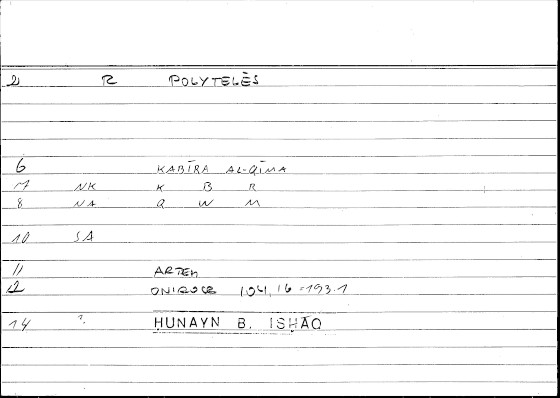 2 R POLYTELÈS
6 KABĪRA AL-QĪMA
7 NK K B R
8 NA Q W M
10 SA
11 ARTEM
12 ONIROCR 104,16 = 193.1
14 ? ḤUNAYN B. ISḤĀQ